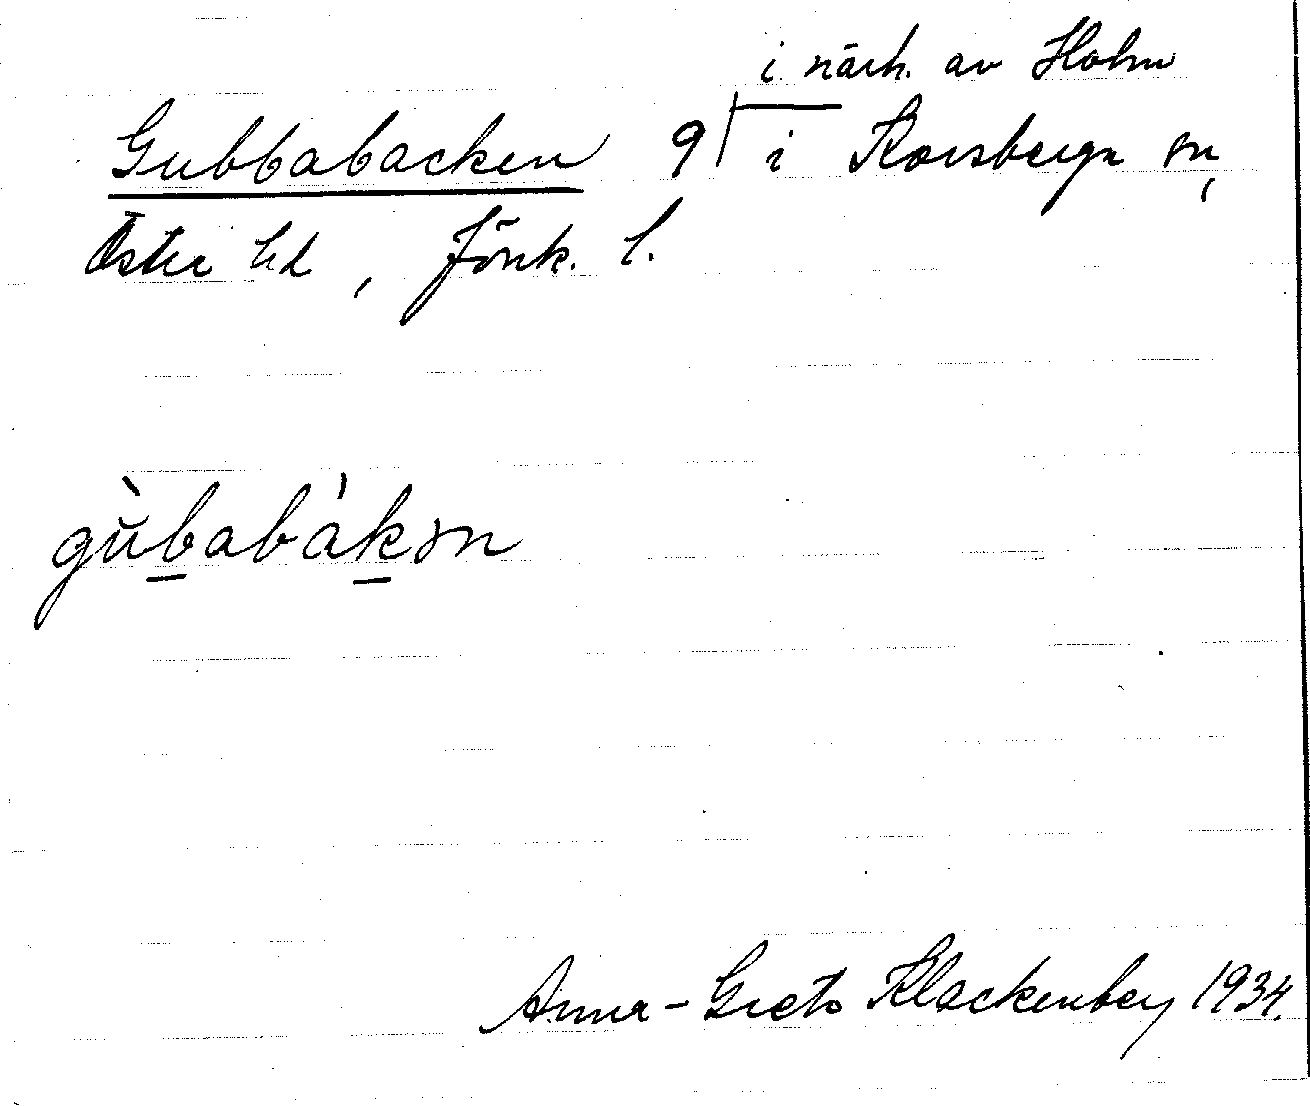 i närh. av Holm
Gubbabacken 9 i Korsberga sn,
Östra hd, Jönk. l.
gùbabàkən
Anna-Greta Klackenberg 1934.